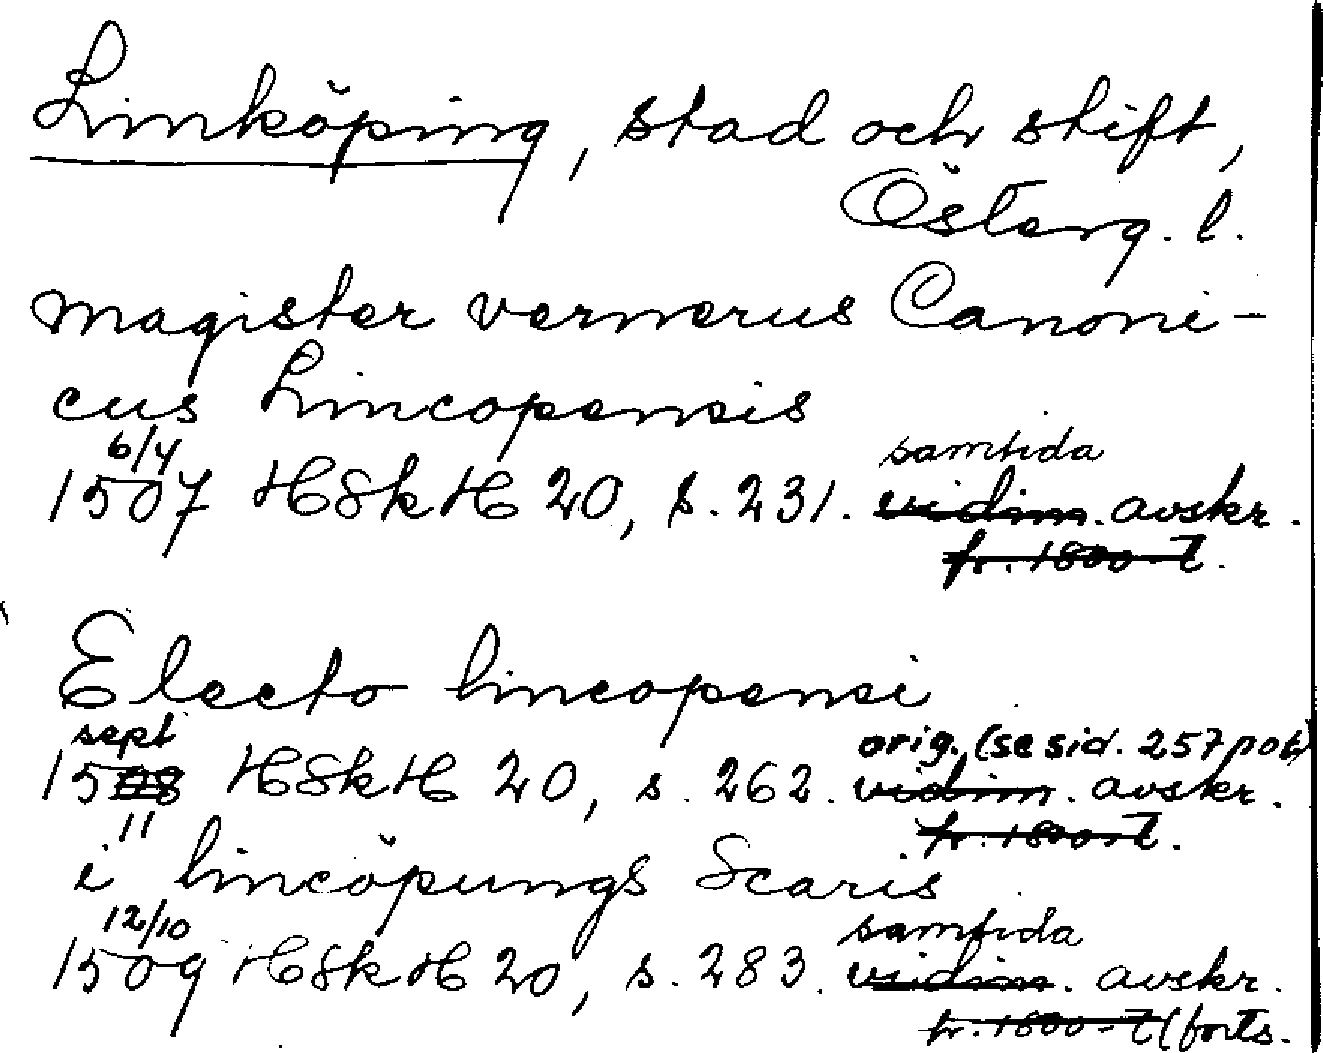 Linköping, stad och stift,
Österg. l.
magister vernerus Canoni-
cus Lincopensis
6/4 samtida
1507 HSkH 20, s. 231. vidim. avskr.
fr. 1800-t.
Electo lincopensi
sept orig. (se sid. 257 not)
1508 HSkH 20, s. 262. vidim. avskr.
11 fr. 1800-t.
i lincöpungs Scaris
12/10 samtida
1509 HSkH 20, s. 283. vidim. avskr.
fr. 1600-t (forts.